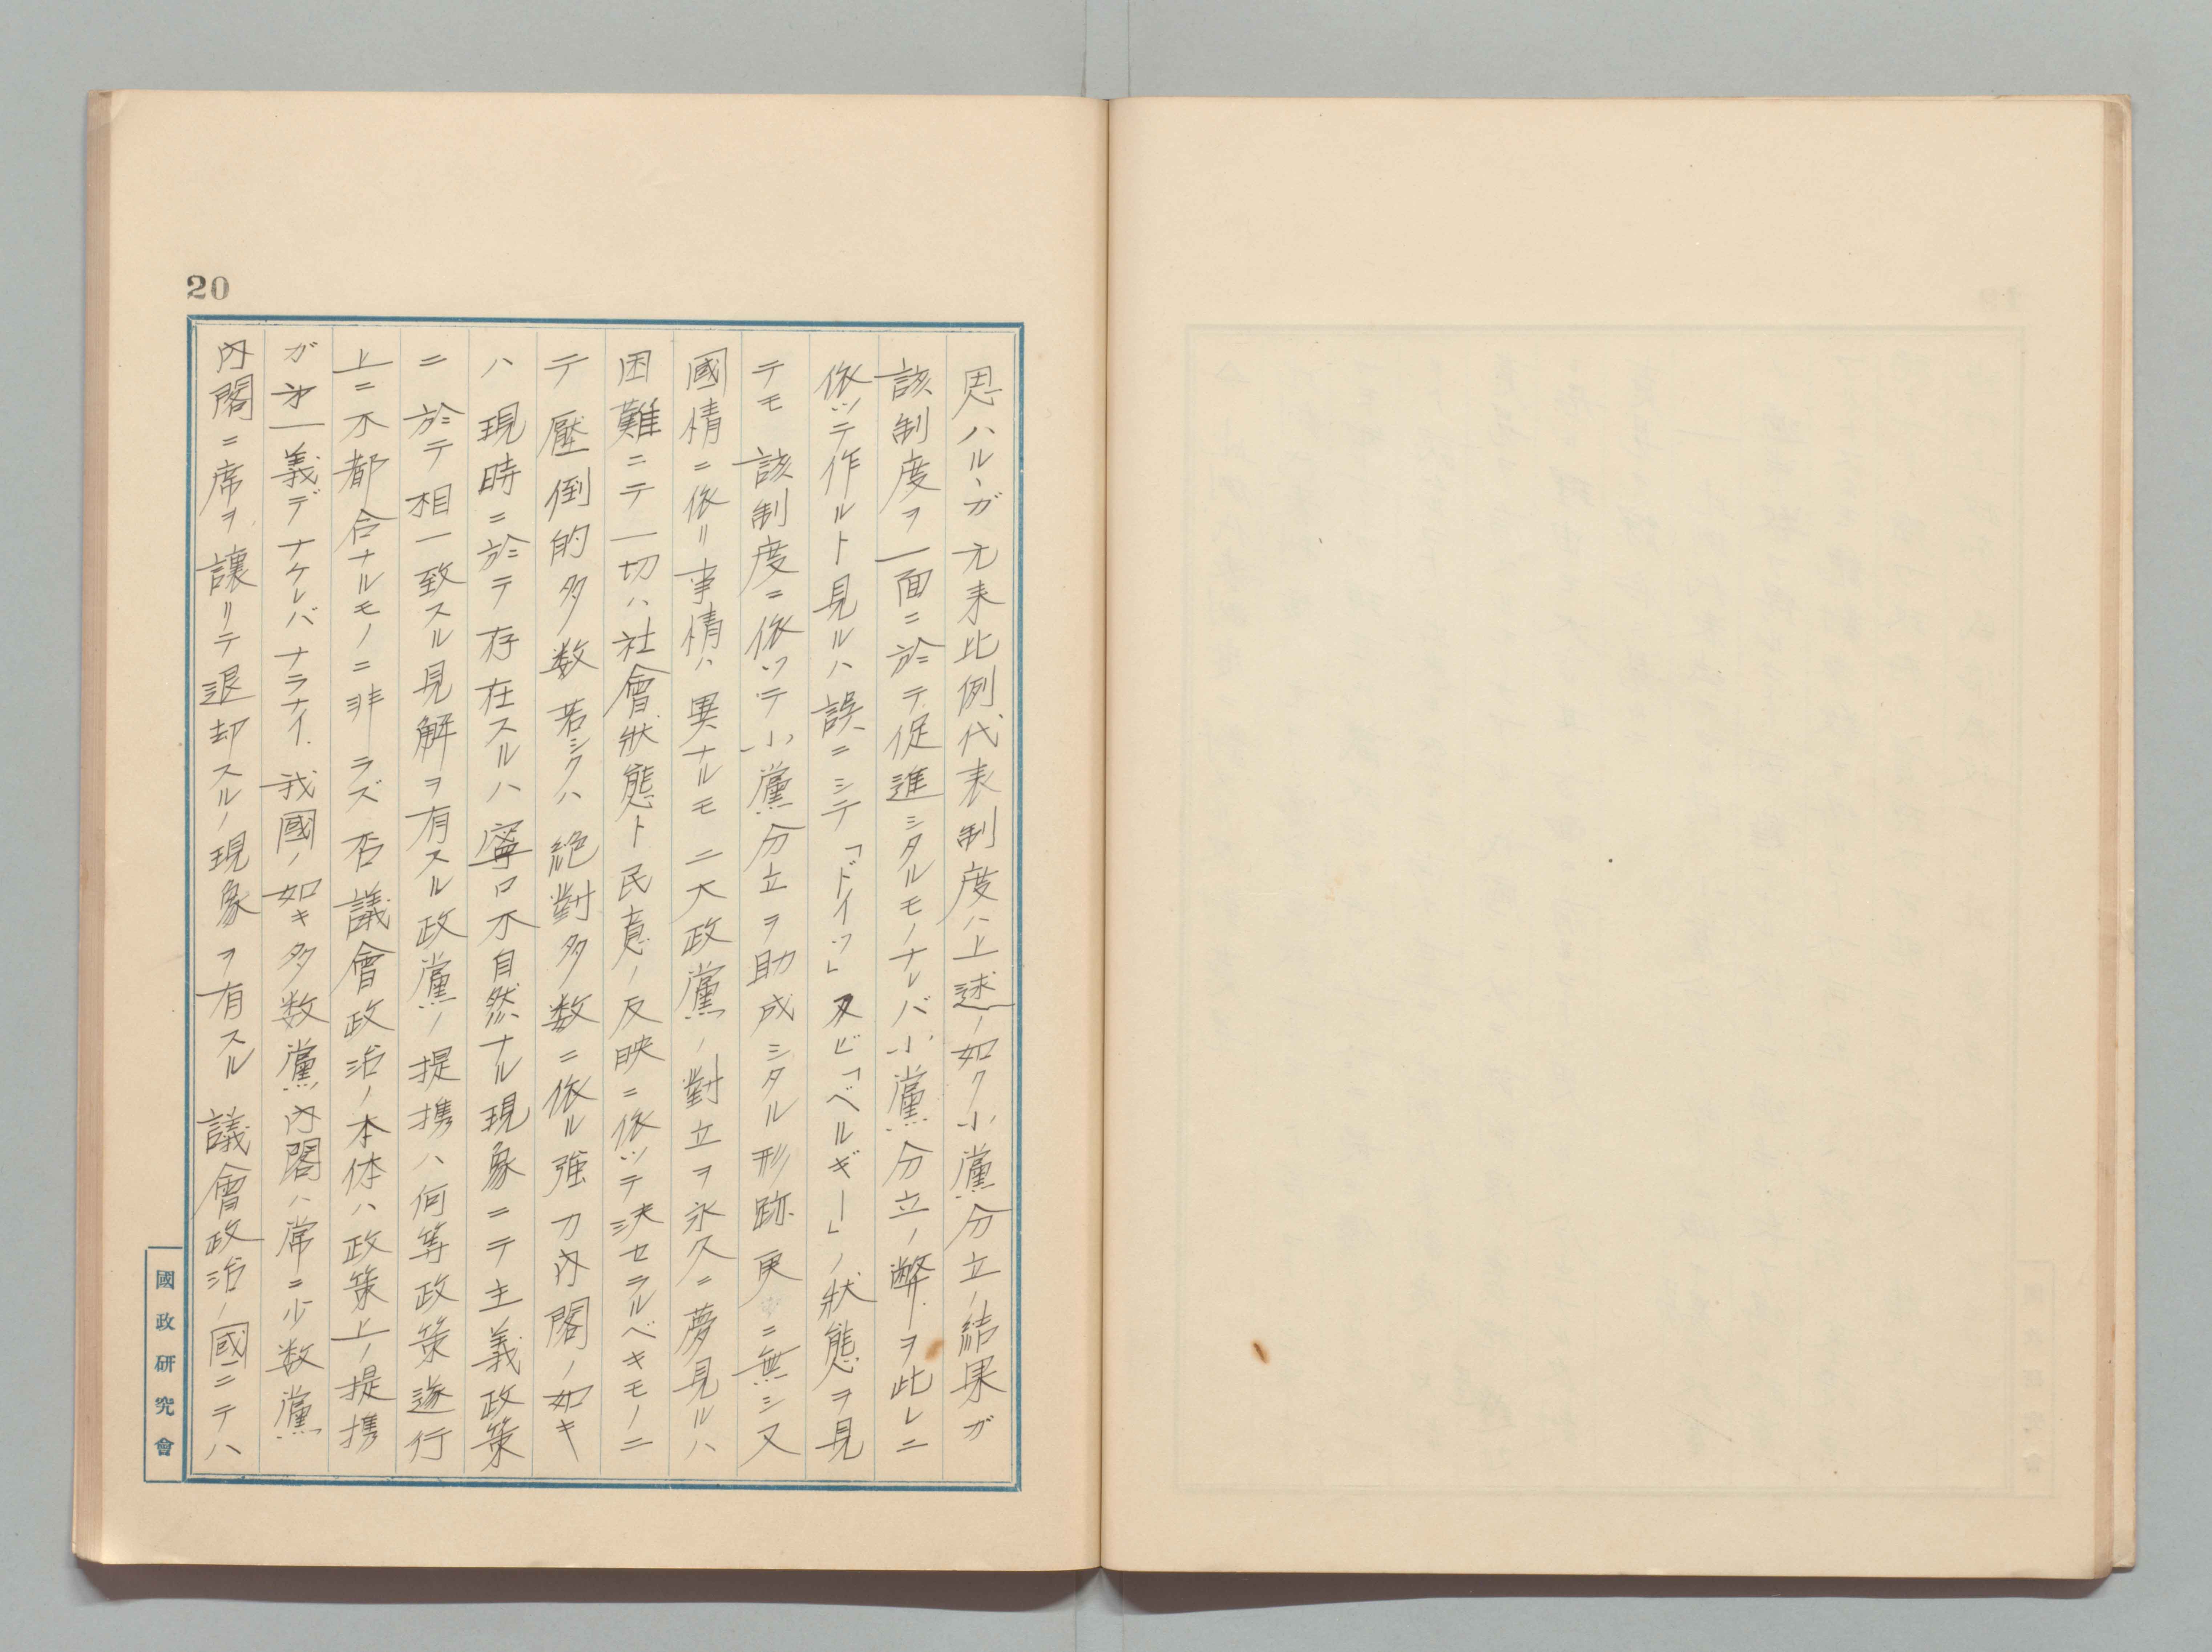 20
思ハルヽガ元来比例代表制度ハ上述ノ如ク小黨分立ノ結果ガ
該制度ヲ一面ニ於テ促進シタルモノナレバ小黨分立ノ弊ヲ此レニ
依ツテ作ルト見ルハ誤ニシテ「ドイツ」及ビ「ベルギー」ノ狀態ヲ見
テモ該制度ニ依ツテ小黨分立ヲ助成シタル形跡更ニ無シ又
國情ニ依リ事情ハ異ナルモ二大政黨ノ對立ヲ永久ニ夢見ルハ
困難ニテ一切ハ社會狀態ト民意ノ反映ニ依ツテ決セラルベキモノニ
テ壓倒的多数若シクハ絶對多数ニ依ル強力内閣ノ如キ
ハ現時ニ於テ存在スルハ寧ロ不自然ナル現象ニテ主義政策
ニ於テ相一致スル見解ヲ有スル政黨ノ提携ハ何等政策遂行
上ニ不都合ナルモノニ非ラズ否議會政治ノ本体ハ政策上ノ提携
ガ㐧一義デナケレバナラナイ.我國ノ如キ多数黨内閣ハ常ニ少数黨
内閣ニ席ヲ讓リテ退却スルノ現象ヲ有スル議會政治ノ國ニテハ
國政研究會